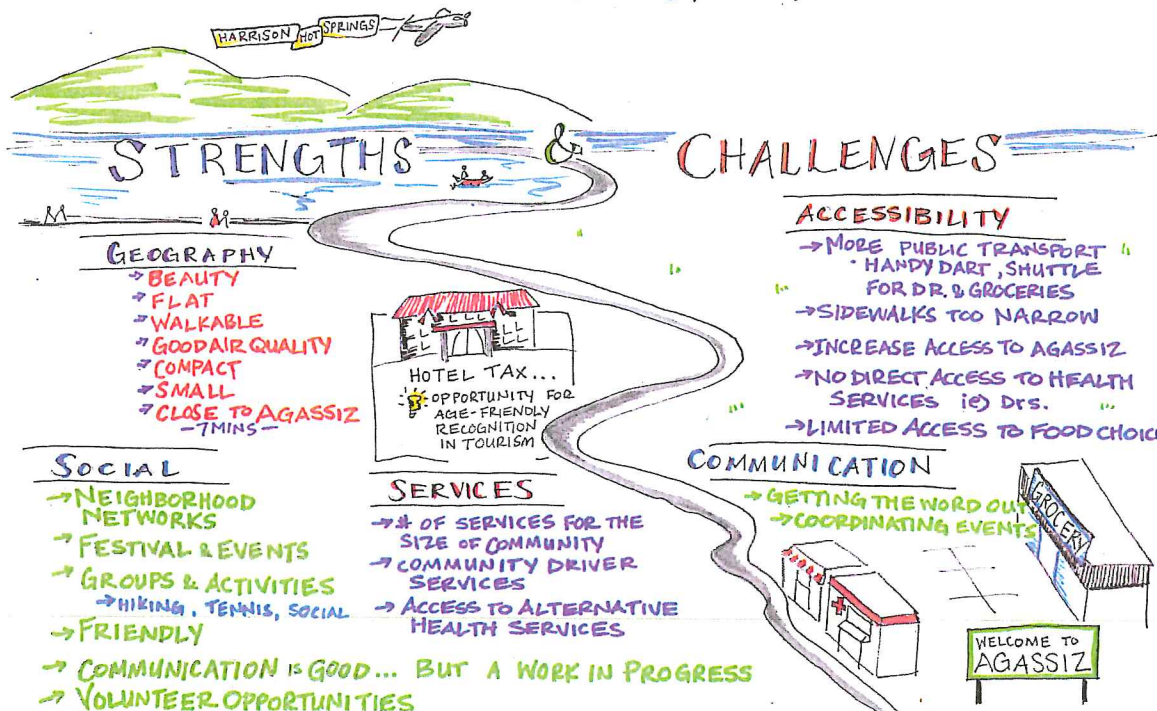 HARRISON HOT SPRINGS
STRENGTHS & CHALLENGES
GEOGRAPHY
→ BEAUTY
→ FLAT
→ WALKABLE
→ GOOD AIR QUALITY
→ COMPACT
→ SMALL
→ CLOSE TO AGASSIZ
- 7 MINS -
HOTEL TAX...
OPPORTUNITY FOR
AGE-FRIENDLY
RECOGNITION
IN TOURISM
SOCIAL
→ NEIGHBORHOOD
NETWORKS
→ FESTIVAL & EVENTS
→ GROUPS & ACTIVITIES
→ HIKING, TENNIS, SOCIAL
→ FRIENDLY
→ COMMUNICATION IS GOOD... BUT A WORK IN PROGRESS
→ VOLUNTEER OPPORTUNITIES
SERVICES
→ # OF SERVICES FOR THE
SIZE OF COMMUNITY
→ COMMUNITY DRIVER
SERVICES
→ ACCESS TO ALTERNATIVE
HEALTH SERVICES
ACCESSIBILITY
→ MORE PUBLIC TRANSPORT
• HANDY DART, SHUTTLE
FOR DR. & GROCERIES
→ SIDEWALKS TOO NARROW
→ INCREASE ACCESS TO AGASSIZ
→ NO DIRECT ACCESS TO HEALTH
SERVICES ie) Drs.
→ LIMITED ACCESS TO FOOD CHOIC
COMMUNICATION
→ GETTING THE WORD OUT
→ COORDINATING EVENTS
GROCERY
WELCOME TO
AGASSIZ